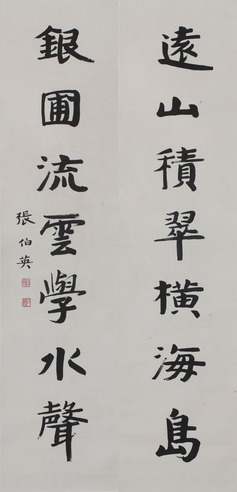 遠山積翠橫海島
銀圃流雲學水聲
張伯英